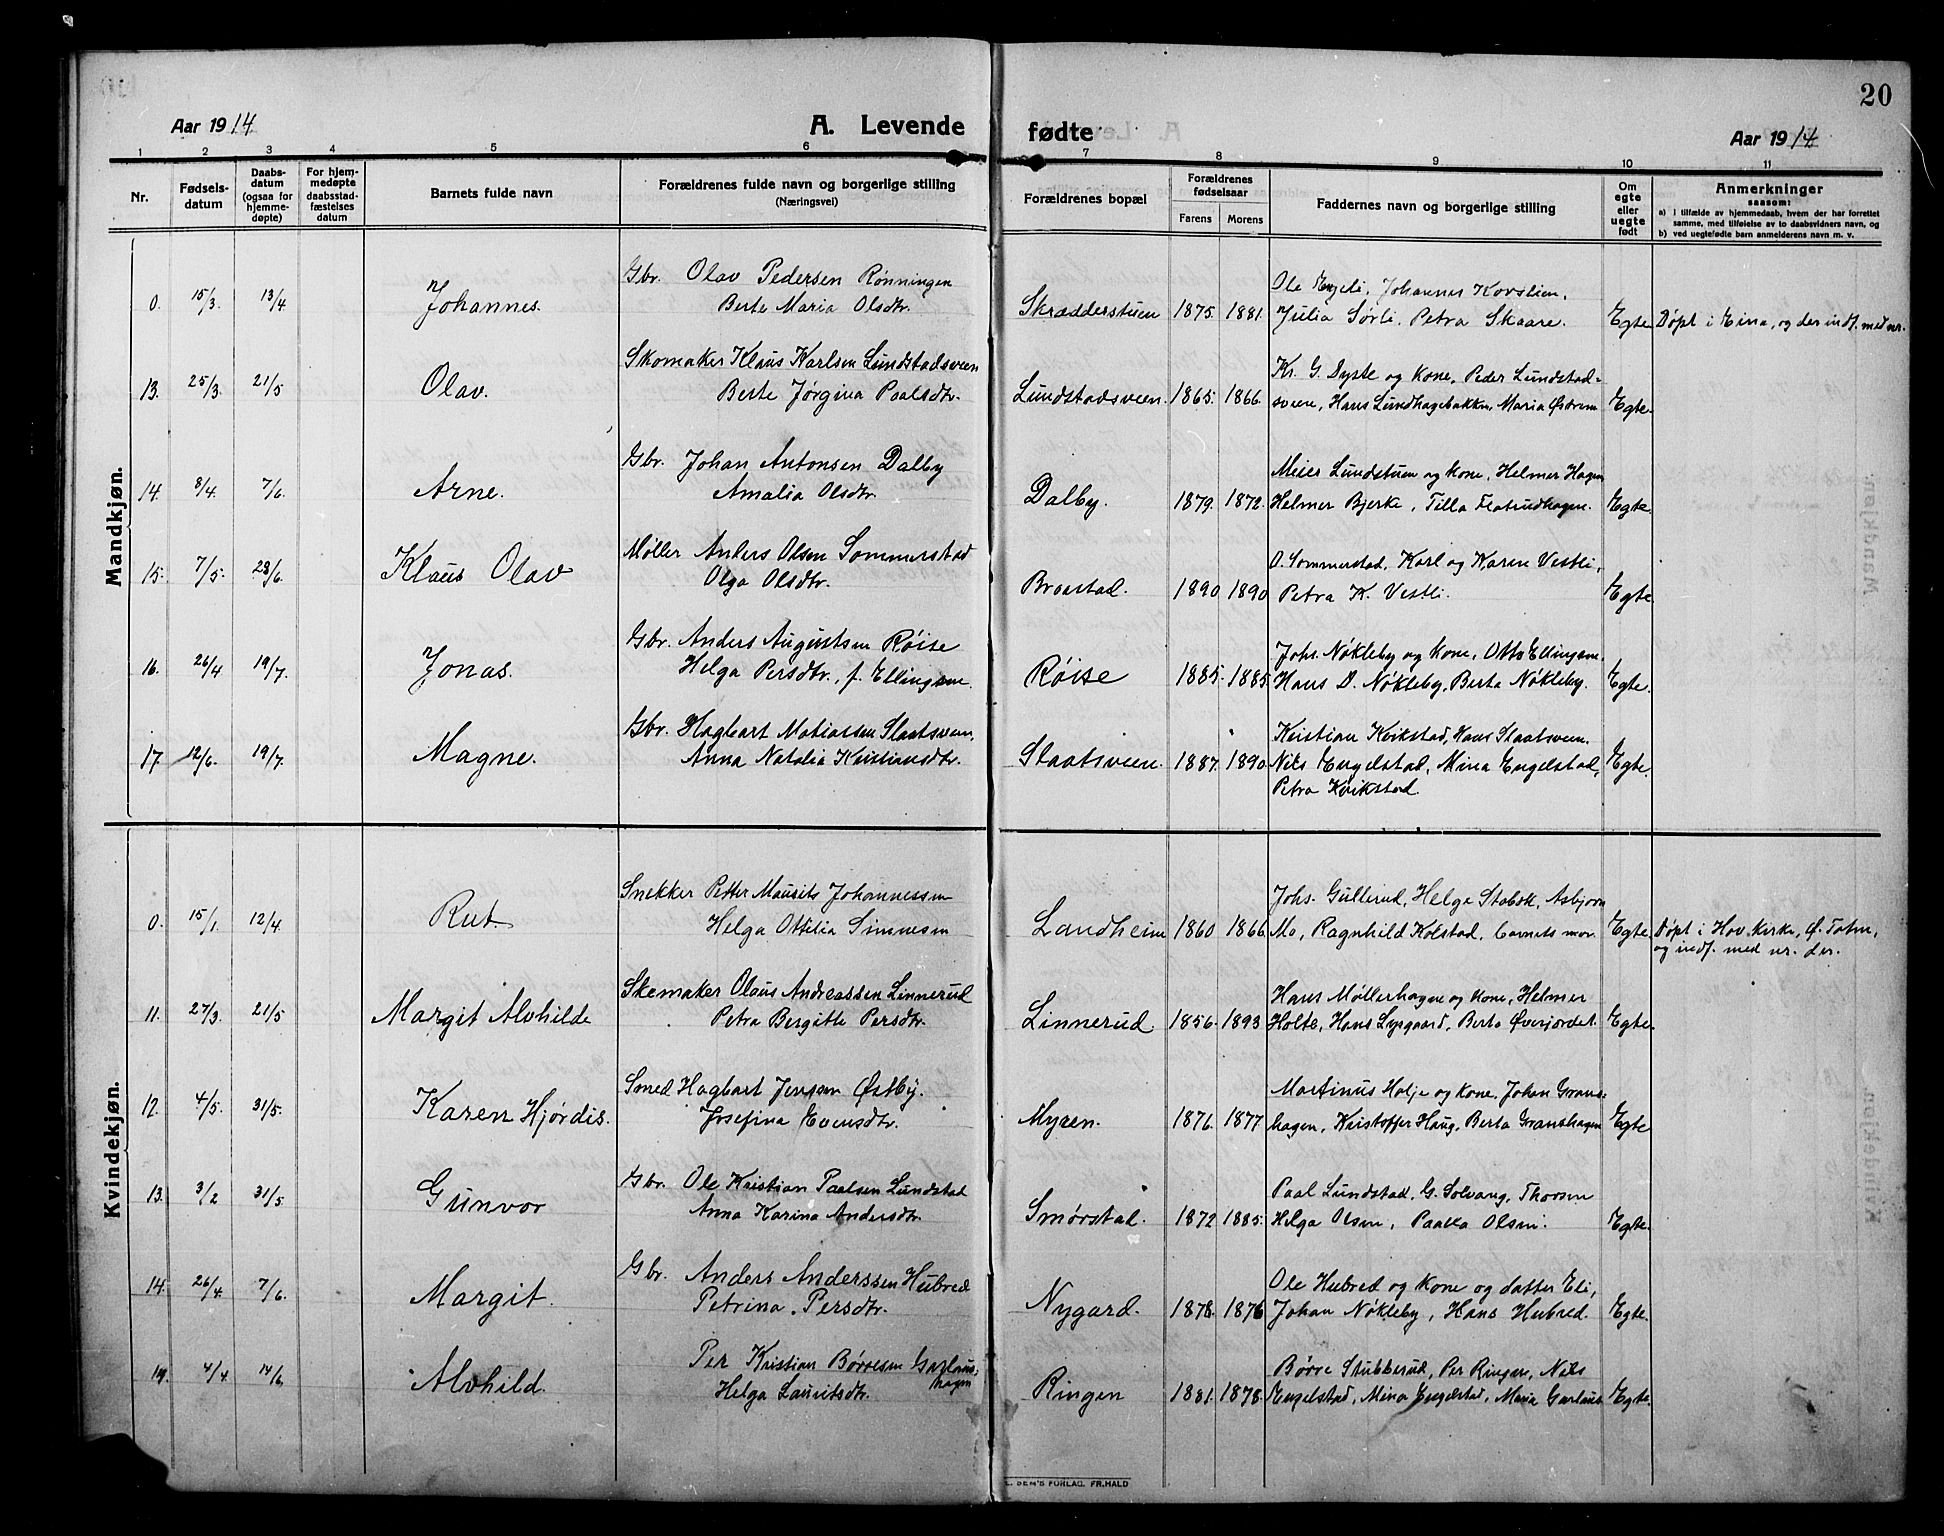 20
Aar 1914
A. Levende
fødte
Aar 1914
1 2 3 4 5 6 7 8 9 10 11
Nr.
Fødsels-
datum
Daabs-
datum
(ogsaa for
hjemme-
døpte)
For hjem-
medøpte
daabsstad-
fæstelses
datum
Barnets fulde navn
Forældrenes fulde navn og borgerlige stilling
(Næringsvei)
Forældrenes bopæl
Forældrenes
fødselsaar
Farens Morens
Faddernes navn og borgerlige stilling
Om
egte
eller
uegte
født
Anmerkninger
saasom:
a) i tilfælde av hjemmedaab, hvem der har forrettet
samme, med tilføielse av to daabsvidners navn, og
b) ved uegtefødte barn anmelderens navn m. v.
Mandkjøn.
0. 15/3. 13/4 Johannes. Gbr. Olav Pedersen Rønningen
Berte Maria Olsdtr.
Skrædderstuen 1875. 1881. Ole Engeli, Johannes Kovslien,
Julia Sørli, Petra Skaare. Egte Døpt i Eina, og der indf. med nr.
13. 25/3. 21/5 Olav. Skomaker Klaus Karlsen Lundstadsveen
Berte Jørgina Paalsdtr.
Lundstadsveen. 1865. 1866. Kr. G. Dyste og kone, Peder Lundstad-
sveen, Hans Lundhagebakken, Maria Egte.
14. 8/4. 7/6. Arne. Gbr. Johan Antonsen Dalby
Amalia Olsdtr.
Dalby. 1879. 1872. Meier Lundstuen og kone, Helmer Hagen
Helmer Bjerke, Tilla Flatrudhagen. Egte.
15. 7/5. 28/6. Klaus Olav Møller Anders Olsen Sommerstad
Olga Olsdtr.
Broastad. 1890 1890 O. Sommerstad, Karl og Karen Vestli,
Petra K. Vestli. Egte.
16. 26/4 19/7. Jonas. Gbr. Anders Augustsen Røise
Helga Persdtr., f. Ellingsen.
Røise 1885. 1885. Johs. Nøkleby og kone, Otto Ellingsen,
Hans D. Nøkleby, Berta Nøkleby. Egte.
17. 12/6. 19/7. Magne. Gbr. Hagbart Matiassen Slaatsveen,
Anna Natalia Kristiansdtr.
Slaatsveen. 1887. 1890 Kristian Kvikstad, Hans Slaatsveen.
Nils Engelstad, Mina Engelstad,
Petra Kvikstad. Egte.
Kvindekjøn.
0. 15/1. 12/4. Rut. Snekker Petter Mausits Johannessen
Helga Ottilia Simensen
Landheim 1860 1866 Johs. Gullerud, Helga Stabæk, Asbjørn
Mo, Ragnhild Kolstad, barnets mor. Egte Døpt i Hov kirke, Ø. Toten,
og indf. med nr. der.
11. 27/3. 21/5 Margit Alvhilde Skomaker Olaus Andreassen Linnerud
Petra Bergitte Persdtr.
Linnerud. 1856. 1893 Hans Møllerhagen og kone, Helmer
Holte, Hans Lysgaard, Berta Øverjordet. Egte.
12. 4/5. 31/5. Karen Hjørdis. Smed Hagbart Jensen Østby.
Josefina Evensdtr.
Myren. 1876. 1877. Martinus Holje og kone, Johan Grans-
hagen, Kristoffer Haug, Berta Granshagen Egte
13. 3/2 31/5 Gunvor Gbr. Ole Kristian Paalsen Lundstad
Anna Karina Andersdtr.
Smørstad. 1872 1885. Paal Lundstad, G. Solvang, Thorsen
Helga Olsen, Olsen. Egte.
14. 26/4 7/6. Margit. Gbr. Anders Anderssen Hubred
Petrina Persdtr.
Nygard. 1878. 1876 Ole Hubred og kone og datter Eli,
Johan Nøkleby, Hans Hubred. Egte.
4/4 14/6 Alvhild. Per Kristian Børresen Garlaus-
hagen
Helga Lauritsdtr.
Ringen 1881. 1878. Børre Stubberud, Per Ringen, Nils
Engelstad, Mina Engelstad, Maria Garlaus Egte.
FORLAG. FR.HALD